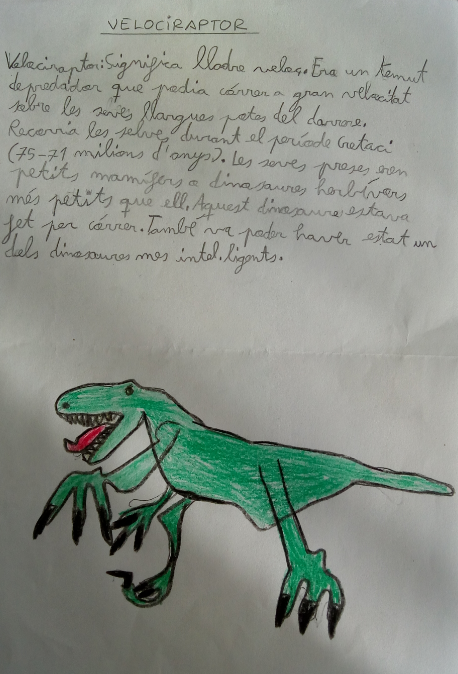 VELOCIRAPTOR
Velociraptor: Significa lladre veloç. Era un temut
depredador que podia córrer a gran velocitat
sobre les seves llargues potes del darrere.
Recorria les selves, durant el període Cretaci
(75-71 milions d'anys). Les seves preses eren
petits mamífers o dinosaures herbívors
més petits que ell. Aquest dinosaure estava
fet per córrer. També va poder haver estat un
dels dinosaures mes intel.ligents.